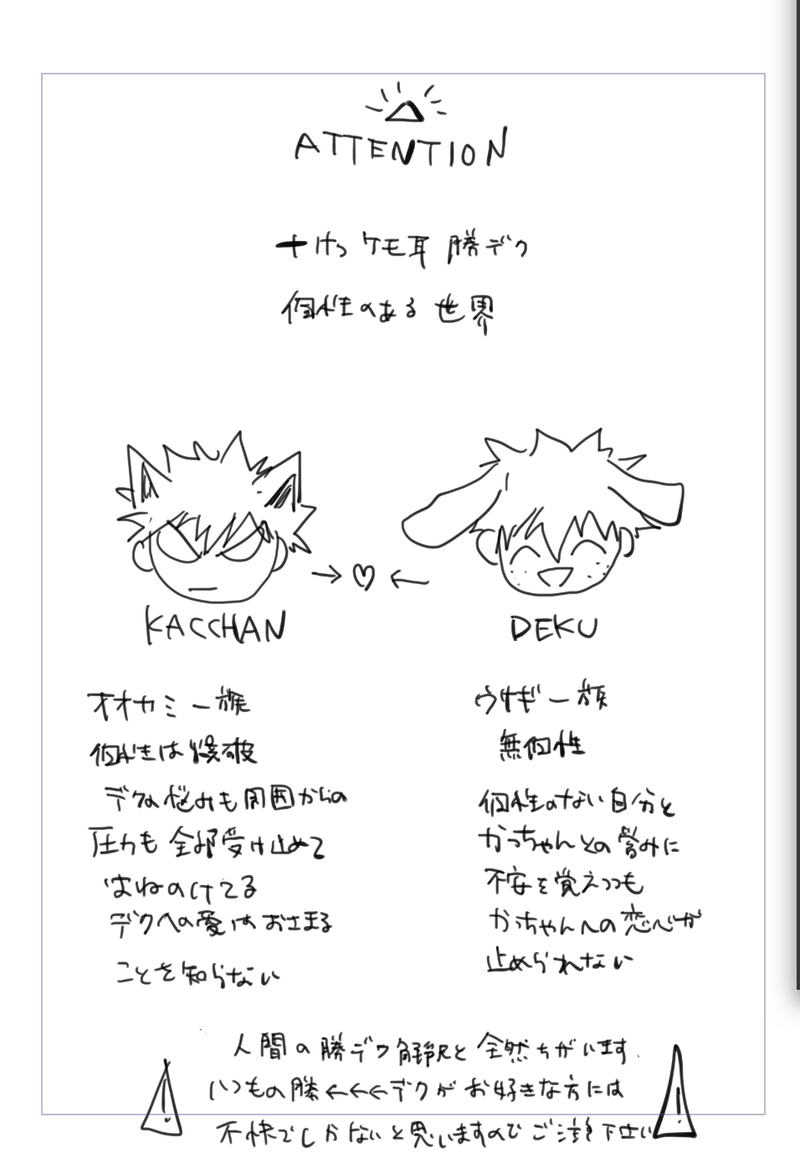 ATTENTION
ケモ耳 勝デク
個性のある世界
KACCHAN
DEKU
オオカミ一族
個性は爆破
デクの悩みも周囲からの
圧力も全部受け止めて
はねのけてる
デクへの愛はおさまる
ことを知らない
ウサギ一族
無個性
個性のない自分と
かっちゃんとの営みに
不安を覚えつつも
かっちゃんへの恋心が
止められない
人間の勝デク解釈と全然ちがいます.
いつもの勝←←←デクがお好きな方には
!
!
不快でしかないと思いますのでご注意下さい